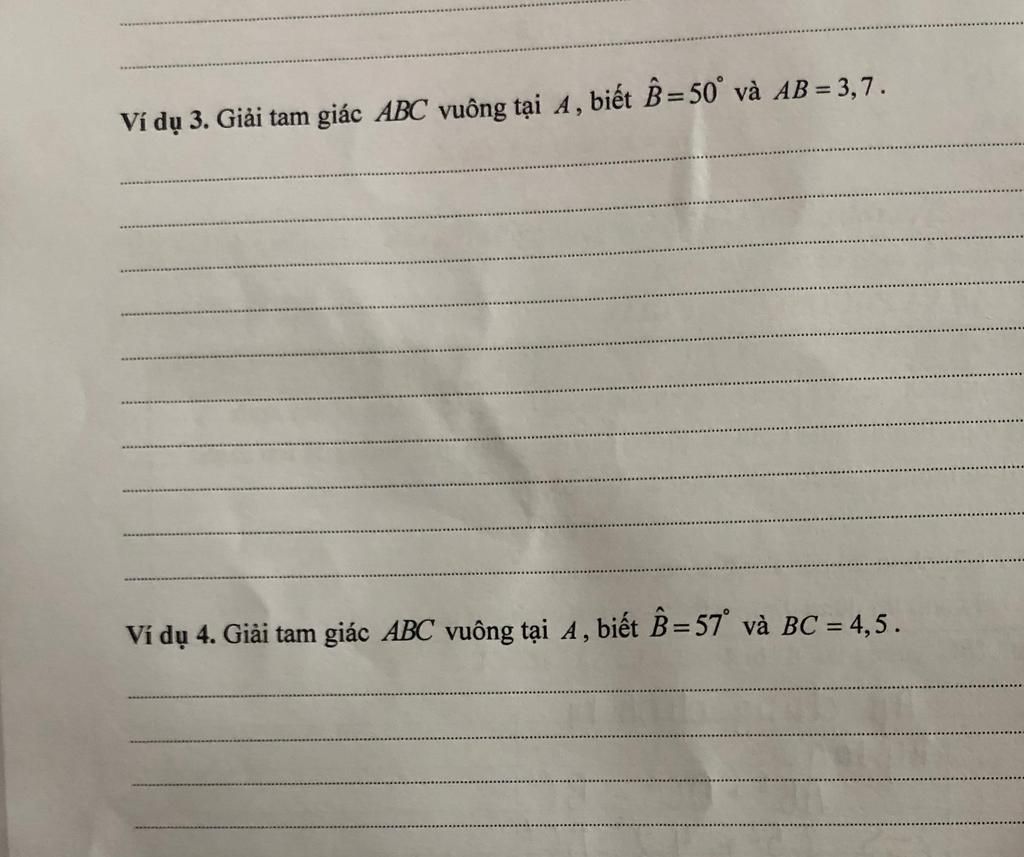 Ví dụ 3. Giải tam giác ABC vuông tại A, biết B̂=50° và AB = 3,7.
Ví dụ 4. Giải tam giác ABC vuông tại A, biết B̂=57° và BC = 4,5.